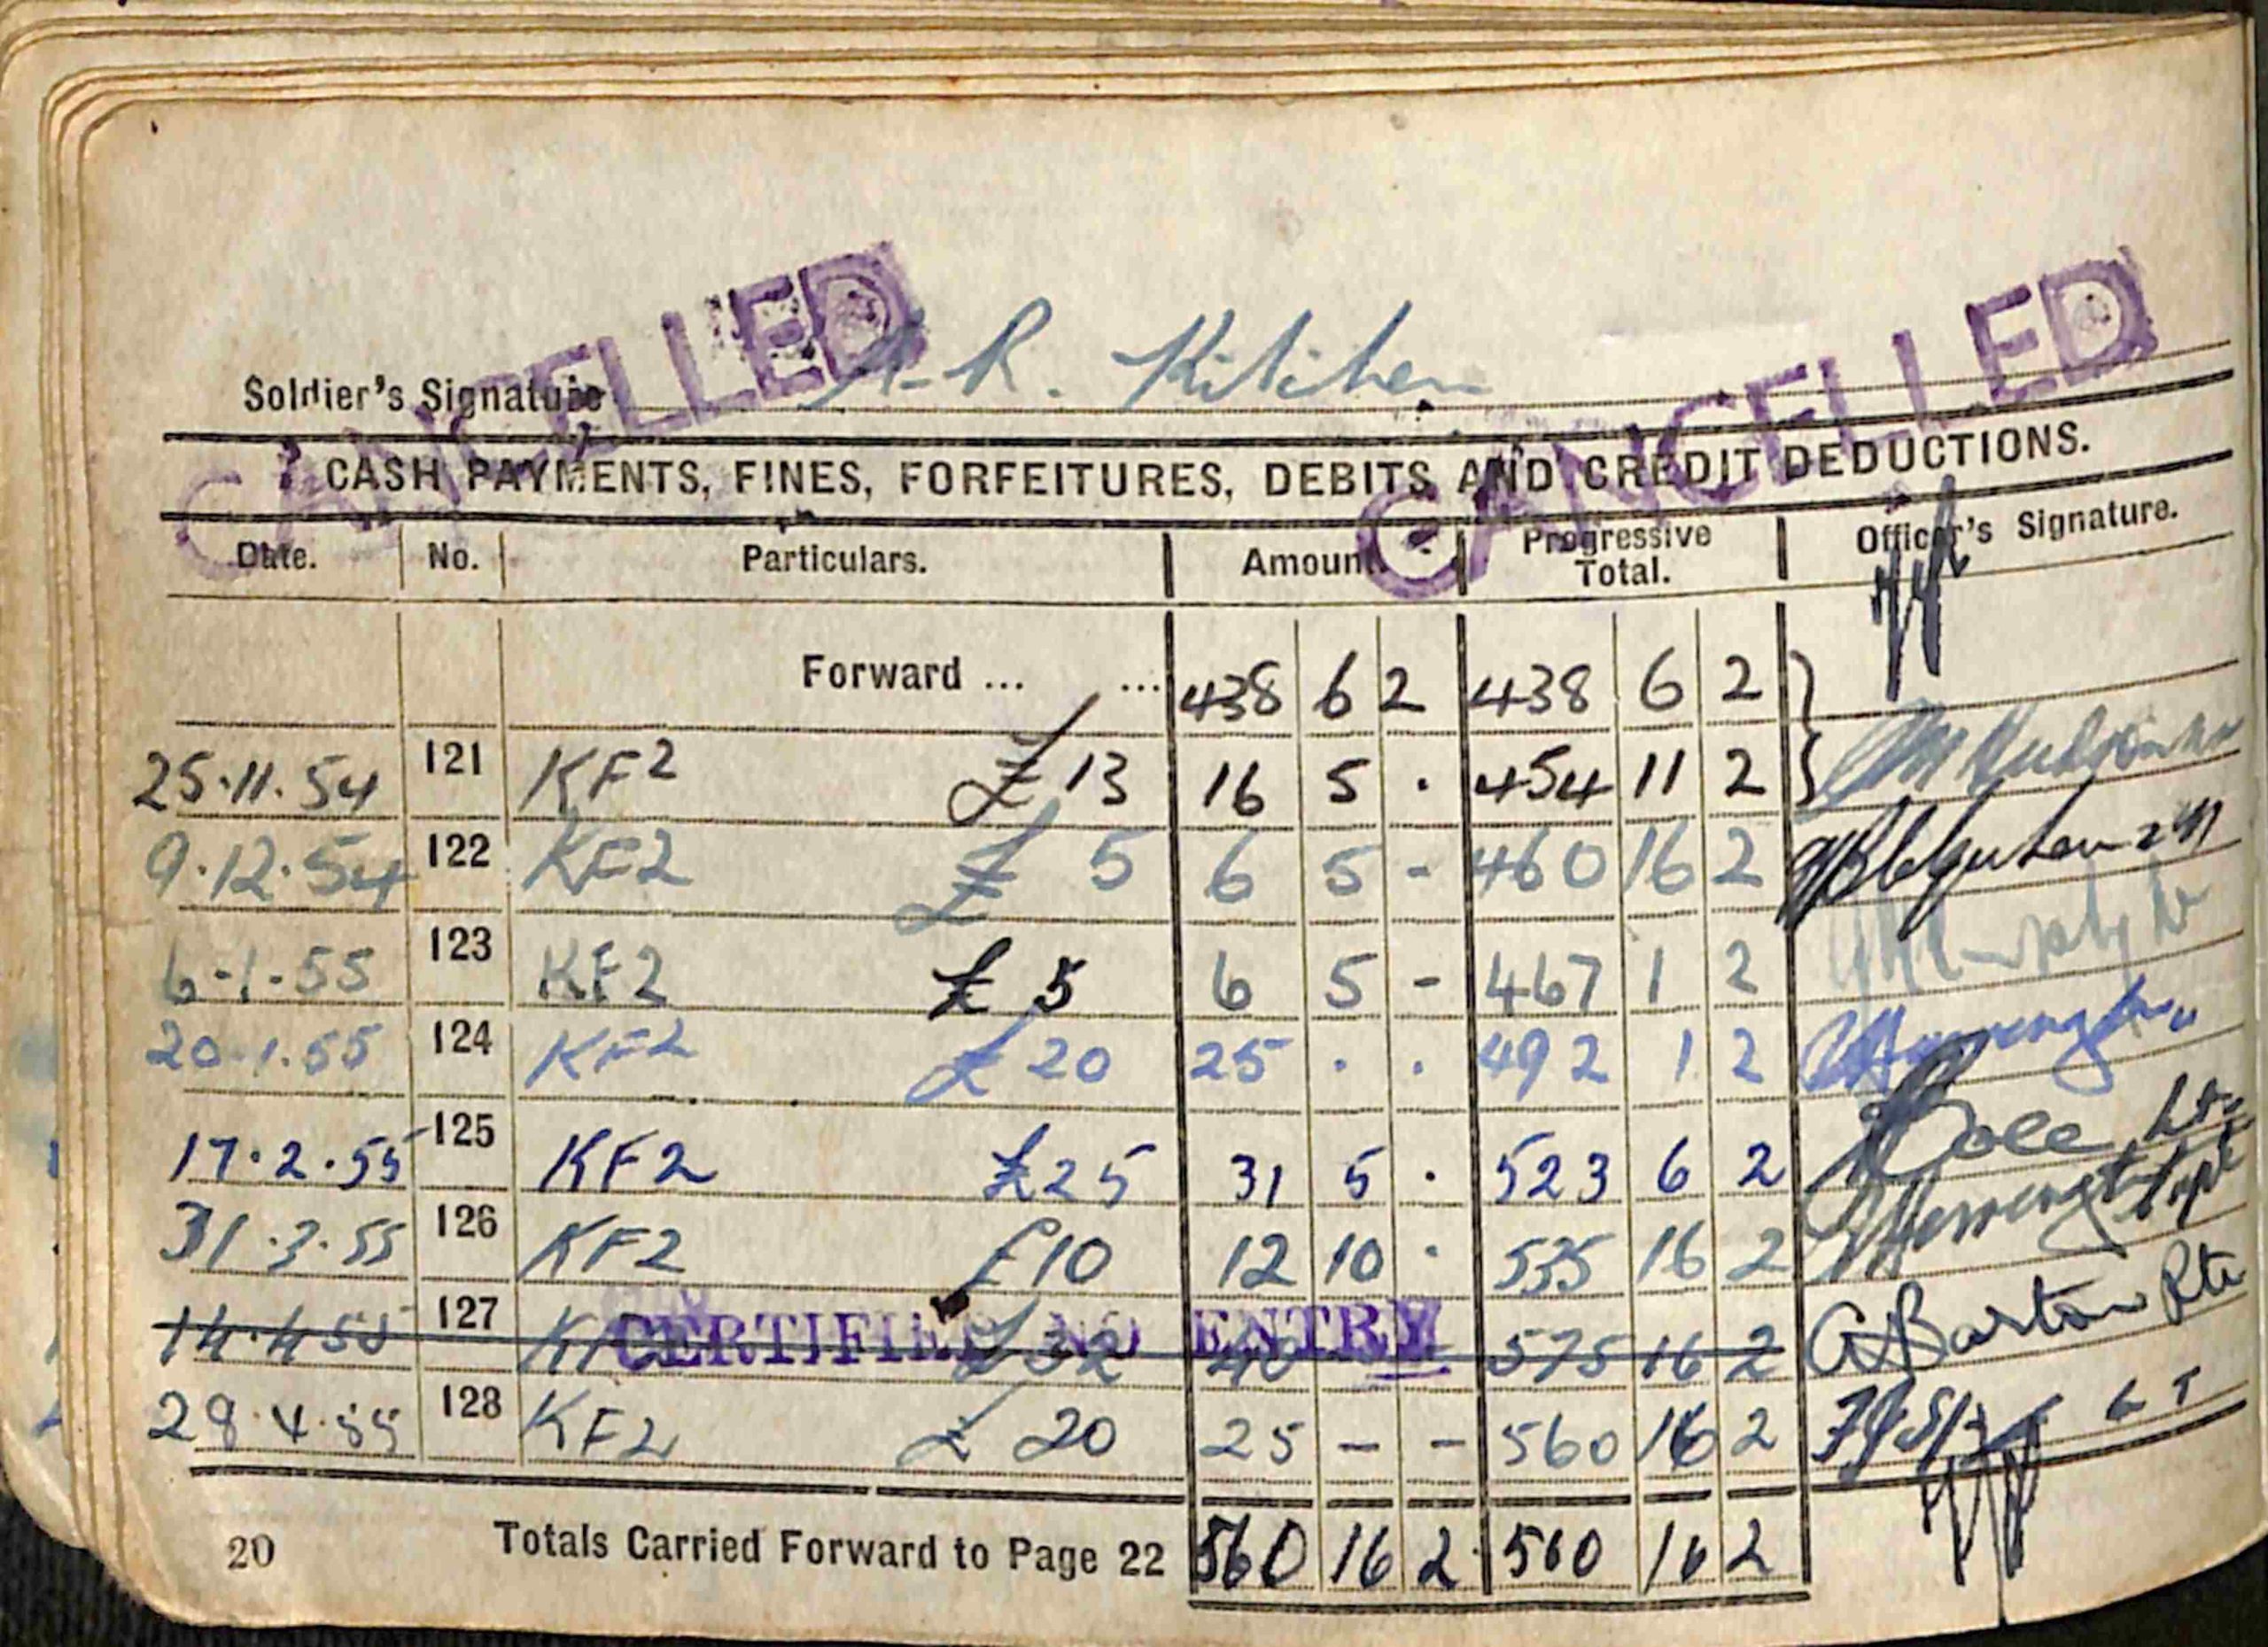 CANCELLED CANCELLED
Soldier's Signature A. R. Kitchen
CASH PAYMENTS, FINES, FORFEITURES, DEBITS AND CREDIT DEDUCTIONS.
Date. No. Particulars. Amount. Progressive Total. Officer's Signature.
Forward ... ... 438 6 2 438 6 2
25·11·54 121 KF2 £13 16 5 · 454 11 2
9·12·54 122 KF2 £ 5 6 5 - 460 16 2
6-1-55 123 KF2 £ 5 6 5 - 467 1 2
20·1·55 124 KF2 £20 25 · · 492 1 2
17·2·55 125 KF2 £25 31 5 · 523 6 2 Cole Lt
31·3·55 126 KF2 £10 12 10 · 535 16 2 Capt
14·4·55 127 KF2 £32 40 575 16 2 A Barton Pte
CERTIFIED NO ENTRY
28·4·55 128 KF2 £ 20 25 - - 560 16 2 LT
20 Totals Carried Forward to Page 22 560 16 2 560 16 2